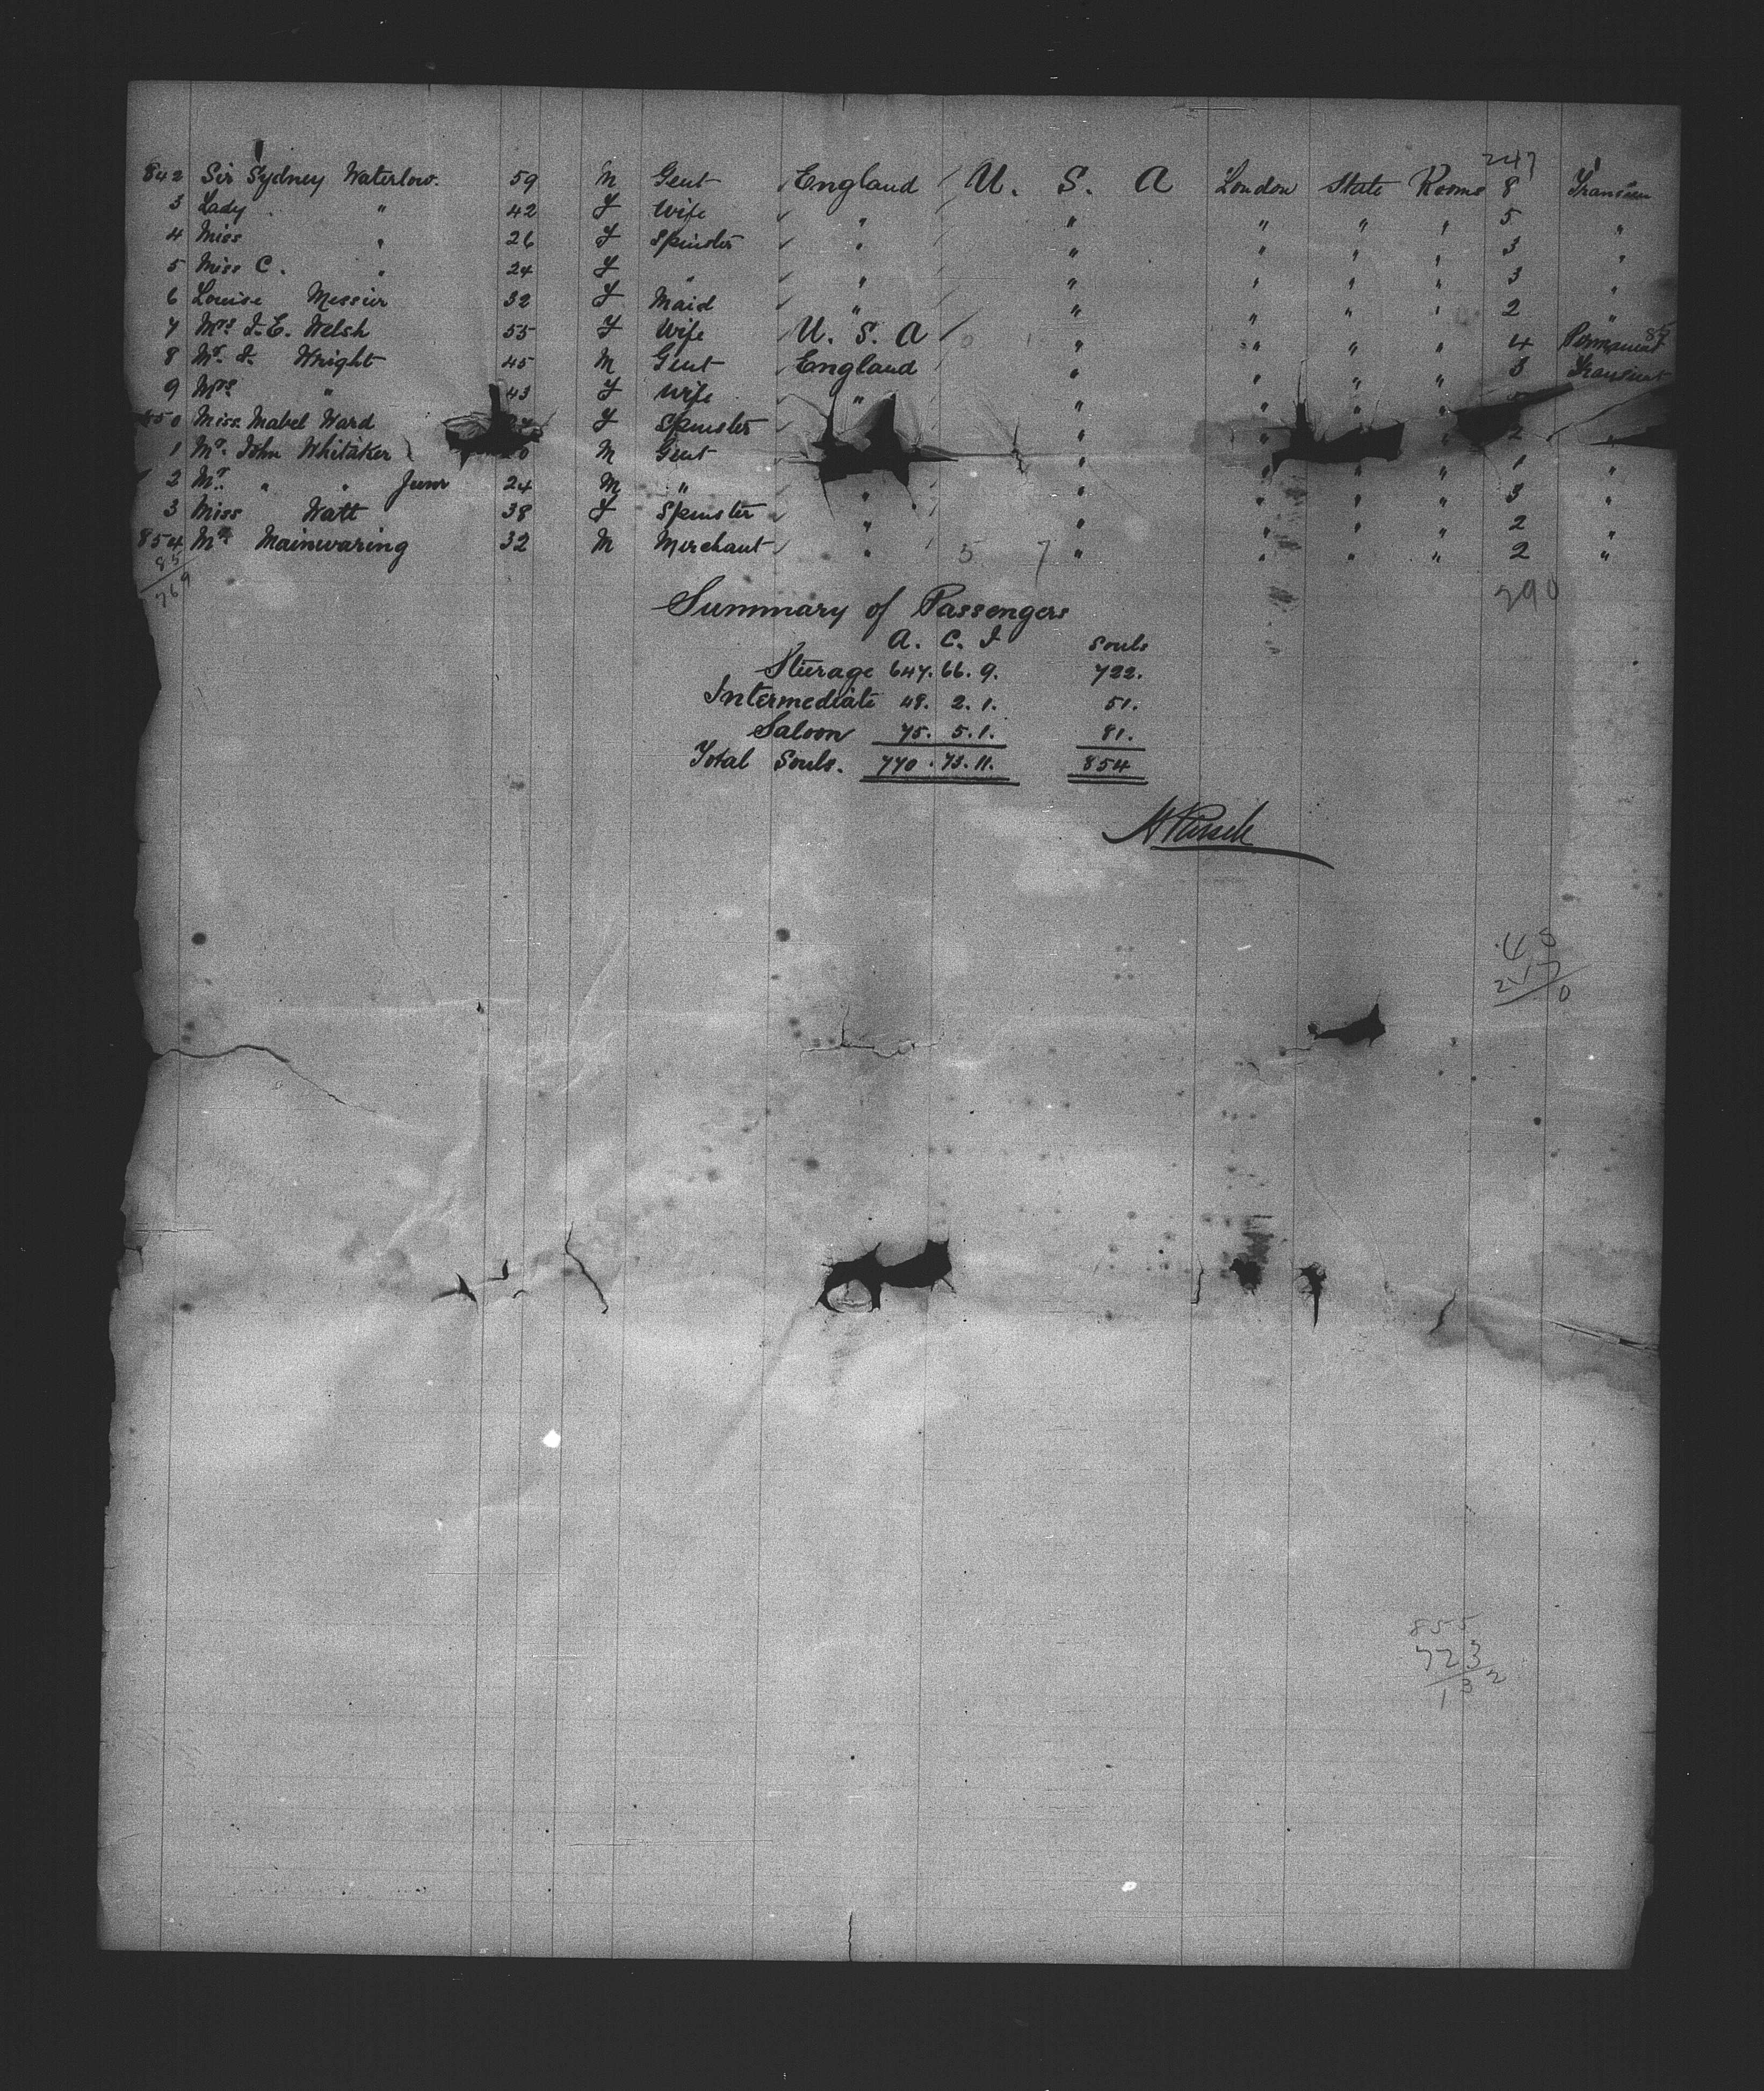 247
842 Sir Sydney Waterlow. 59 M Gent England U. S. A London State Rooms 8 Transien
3 Lady " 42 F Wife " " " " " 5 "
4 Miss " 26 F Spinster " " " " " 3 "
5 Miss C. " 24 F " " " " " " 3 "
6 Louise Messier 32 F Maid " " " " " 2 "
7 Mrs I. E. Welsh 55 F Wife U. S. A " " " " 4 Permanent 85
8 Mr. I. Wright 45 M Gent England " " " " 3 Transient
9 Mrs " 43 F Wife " " " " "
850 Miss Mabel Ward F Spinster " " " " 2 "
1 Mr. John Whitaker 0 M Gent " " " " 1 "
2 Mr. " " Junr 24 M " " " " " " 3 "
3 Miss Watt 38 F Spinster " " " " " 2 "
854 Mr. Mainwaring 32 M Merchant " 5 7 " " " " 2 "
85
769
290
Summary of Passengers
A. C. I Souls
Sturage 647. 66. 9. 722.
Intermediate 48. 2. 1. 51.
Saloon 75. 5. 1. 81.
Total Souls. 770. 73. 11. 854
45
217
0
855
723
132